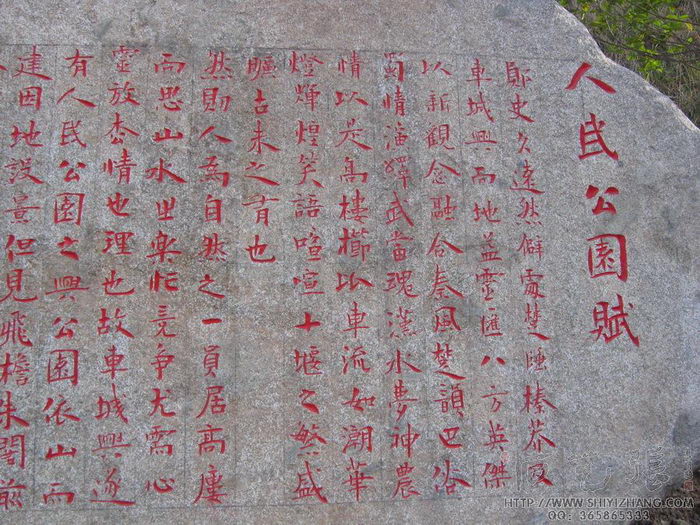 人民公園賦
鄖史久遠然僻處楚陲榛莽及
車城興而地益靈匯八方英傑
以新觀念融合秦風楚韻巴俗
蜀情演繹武當瑰漢水夢神農
情以是高樓櫛比車流如潮華
燈輝煌笑語喧喧十堰之繁盛
曠古未之有也
然則人為自然之一員居高廔
而思山水世樂忙競爭尤需心
靈放松情也理也故車城興遂
有人民公園之興公園依山而
建因地設景但見飛檐朱閣前
HTTP://WWW.SHIYIZHANG.COM
QQ: 365865333